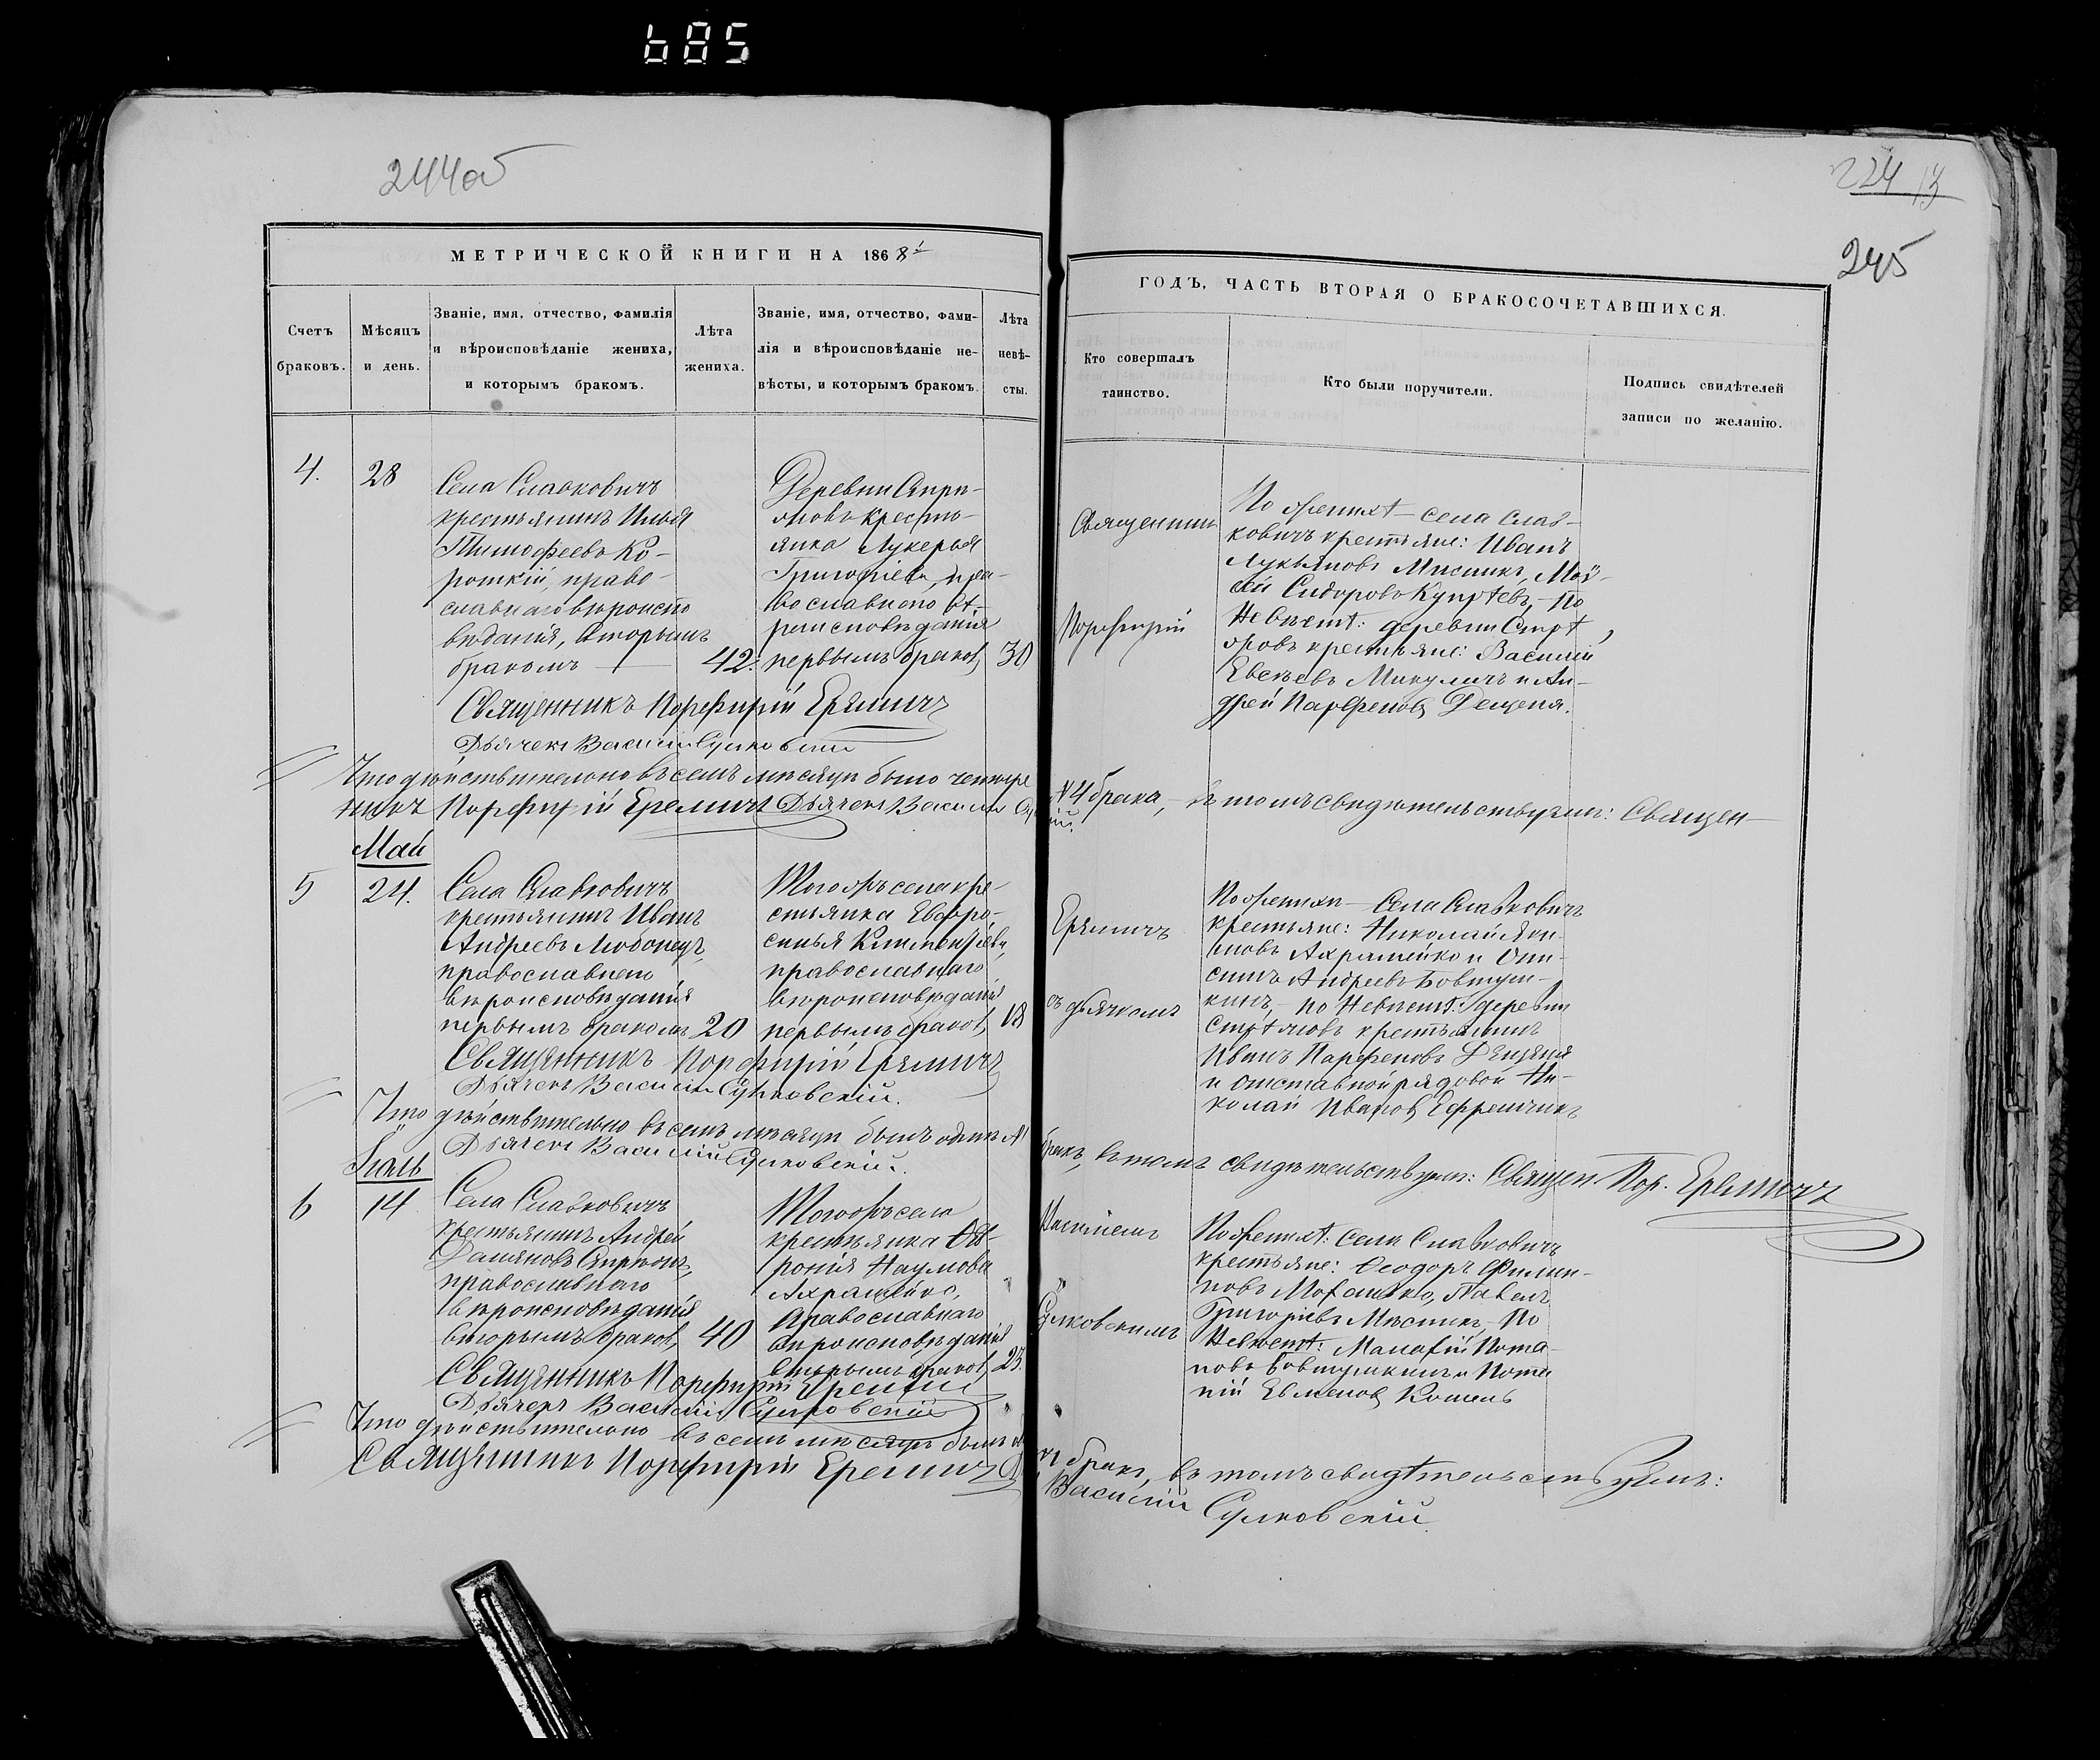 685
244об
224
245
МЕТРИЧЕСКОЙ КНИГИ НА 1868
ГОДЪ, ЧАСТЬ ВТОРАЯ О БРАКОСОЧЕТАВШИХСЯ.
Счетъ
браковъ.
Мѣсяцъ
и день.
Званіе, имя, отчество, фамилія
и вѣроисповѣданіе жениха,
и которымъ бракомъ.
Лѣта
жениха.
Званіе, имя, отчество, фами-
лія и вѣроисповѣданіе не-
вѣсты, и которымъ бракомъ.
Лѣта
невѣ-
сты.
Кто совершалъ
таинство.
Кто были поручители.
Подпись свидѣтелей
записи по желанію.
4.
28
Села Славковичъ
крестьянинъ Илья
Тимофеевъ Ко-
роткій, право-
славнаго вѣроиспо
вѣданія, вторымъ
бракомъ
42.
Деревни
крестъ-
янка Лукерья
Григоріева, пра-
вославнаго вѣ-
роисповѣданія
первымъ браков,
30
Священникъ
Порфирій
По женихѣ села Слав-
ковичъ крестьяне: Иванъ
Лукьяновъ Мисникъ, Мой-
сей Сидоровъ - по
Невѣстѣ: деревни
крестьяне: Василій
Микуличъ и Ан-
дрей Парфеновъ Дещеня.
Священникъ Порфирій Еремичъ
Дьячекъ Василій Сулковскій
Что дѣйствительно въ семъ мѣсяцѣ было четыре
№ 4 брака, въ томъ свидѣтельствуемъ: Священ-
никъ Порфирій Еремичъ Дьячекъ Василій
Май
5
24.
Села Славковичъ
крестьянинъ Иванъ
Андреевъ
православнаго
вѣроисповѣданія
первымъ бракомъ
20
Тогожъ села кре-
стьянка Евфро-
синья
православнаго
вѣроисповѣданія
первымъ браков,
18
Еремичъ
съ дьячкомъ
По женихѣ - села Славковичъ
крестьяне: Николай Яки-
мовъ Ахрамейко и Они-
симъ Андреевъ Бовтуш-
кинъ, - по Невѣстѣ: деревни
крестьянинъ
Иванъ Парфеновъ Дещеня
и отставной рядовой Ни-
колай Ивановъ Ефремчикъ
Священникъ Порфирій Еремичъ
Дьячекъ Василій Сулковскій.
Что дѣйствительно въ семъ мѣсяцѣ былъ одинъ №1
бракъ, въ томъ свидѣтельствуемъ: Священ. Пор. Еремичъ
Дьячекъ Василій Сулковскій.
6
14
Села Славковичъ
крестьянинъ Андрей
православнаго
вѣроисповѣданія
вторымъ браков,
40
Тогожъ села
крестьянка Ѳев-
ронія Наумова
Ахрамейко,
Православнаго
вѣроисповѣданія
вторымъ браков,
23.
Василіемъ
Сулковскимъ
По женихѣ: села Славковичъ
крестьяне: Ѳеодоръ Филип-
повъ Павелъ
Григоріевъ Мисникъ, - По
Невѣстѣ: Малафій Пота-
повъ Бовтушкинъ и
Священникъ Порфирій Еремичъ
Дьячекъ Василій Сулковскій
Что дѣйствительно въ семъ мѣсяцѣ былъ
№1 бракъ, въ томъ свидѣтельствуемъ:
Священникъ Порфирій Еремичъ
Василій
Сулковскій.